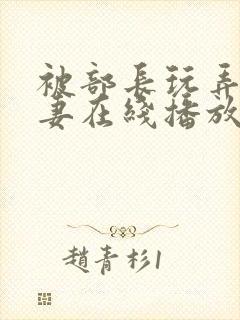 被部長玩弄
妻在綫播放
趙青杉1